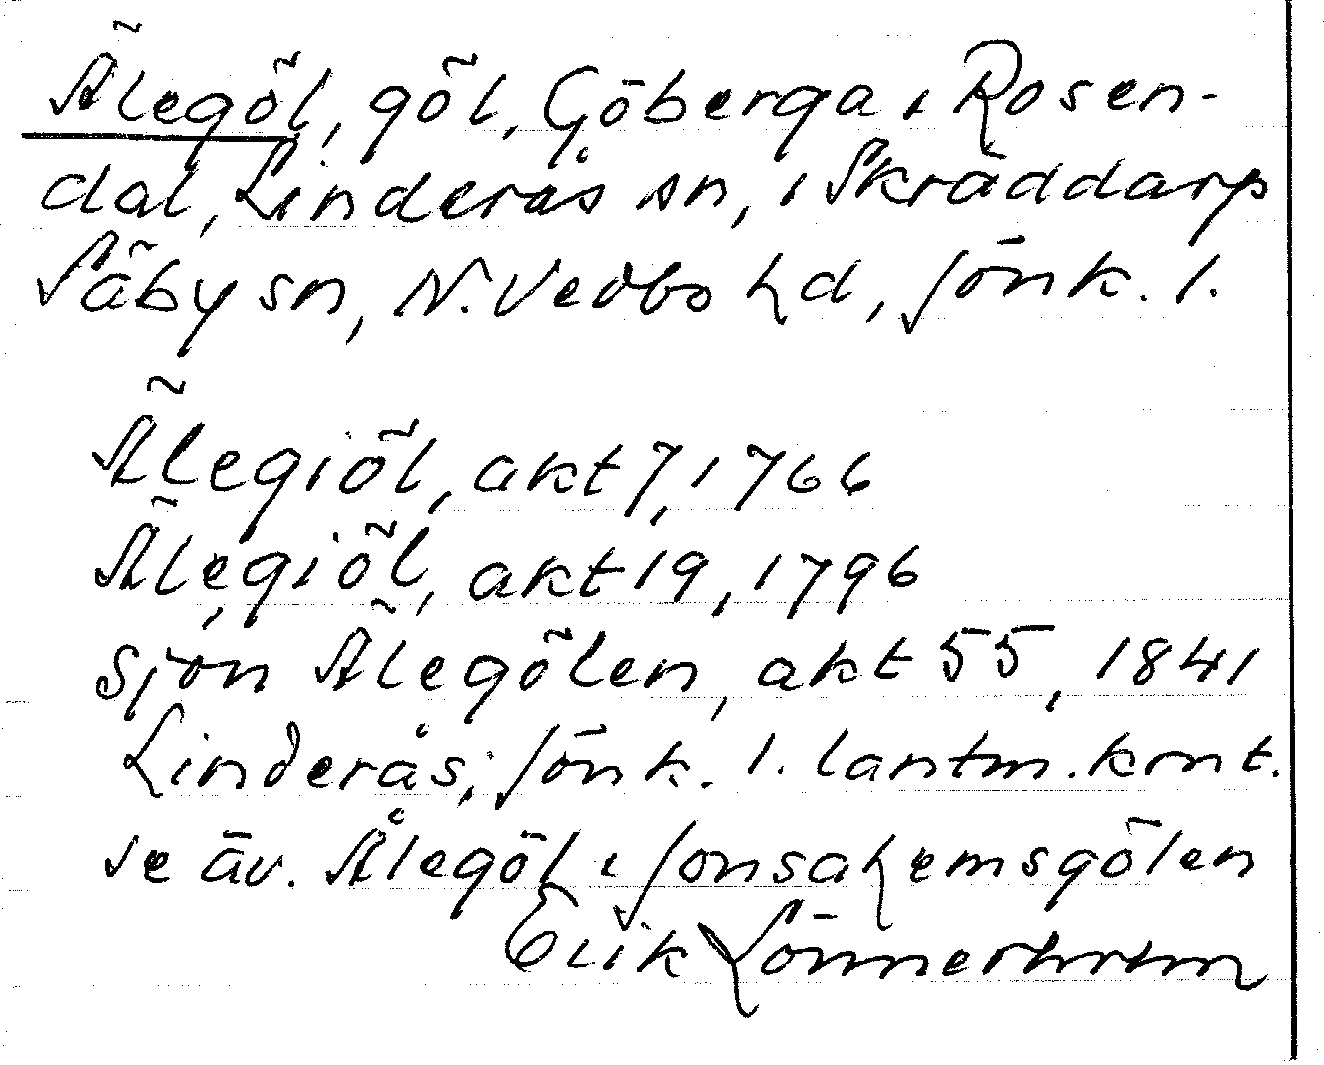 Älegöl, göl, Göberga, Rosen-
dal, Linderås sn, i Skräddarp
Säby sn, N. Vedbo hd, Jönk. l.
Älegiöl, akt 7, 1766
Älegiöl, akt 19, 1796
sjön Älegölen, akt 55, 1841
Linderås, Jönk. l. lantm. knt.
se äv. Ålegöl, Jonsahemsgölen
Erik Lönnerholm